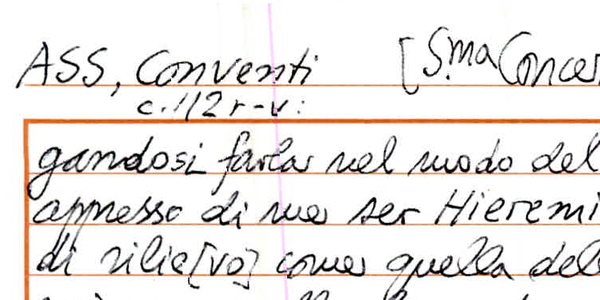 ASS, Conventi [S.ma Concez
c. 112 r-v:
gandosi farlas nel modo del
appresso di me ser Hieremi
di rilie[vo] come quella del